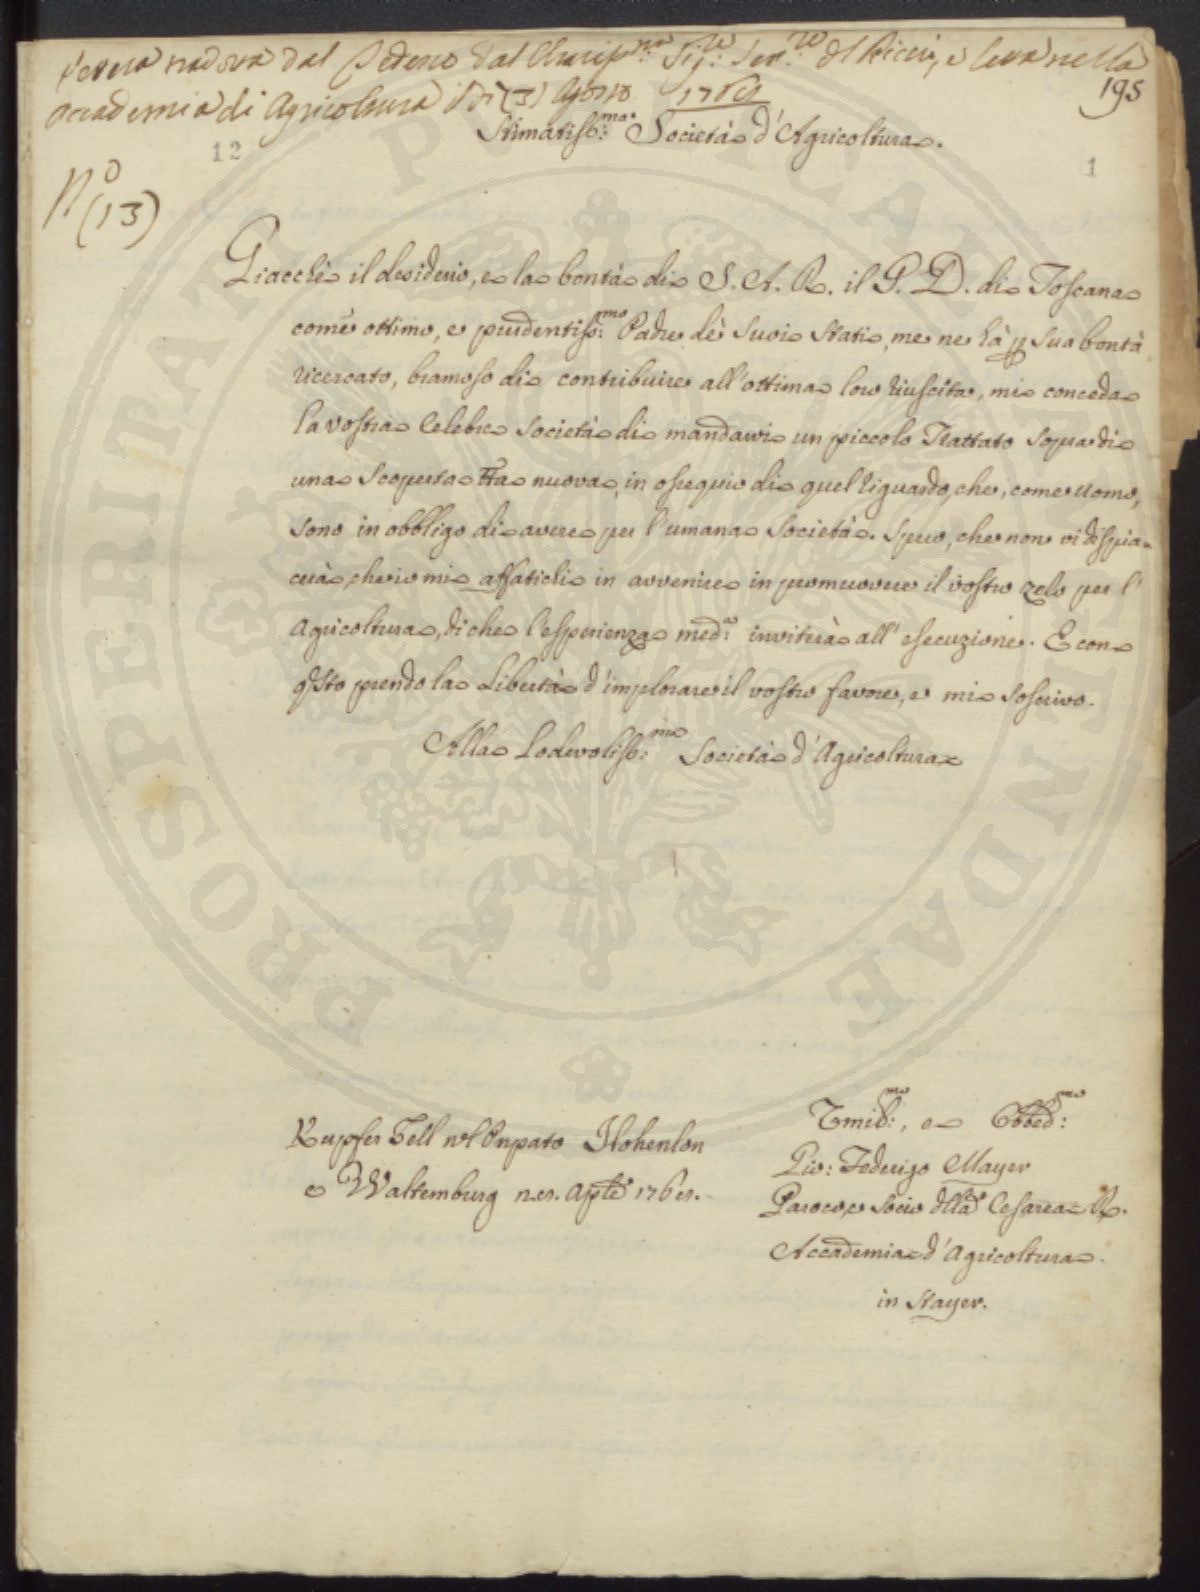 dal Tedesco dal Sig:re del Riccio, e letta nella
Accademia di Agricoltura Agosto
195
Stimatiss:ma Società d'Agricoltura.
12
1
N.o
(13)
Giacchè il desiderio, e la bontà di S. A. R. il G. D. di Toscana
come ottimo, e prudentiss:mo Padre de' suoi Stati, me ne hà p sua bontà
ricercato, bramoso di contribuire all'ottima loro riuscita, mi conceda
la vostra Celebre Società di mandarvi un piccolo Trattato sopra di
una scoperta tta nuova, in ossequio di quel riguardo, che, come Uomo,
sono in obbligo di avere per l'umana Società. Spero, che non vi dispia=
cerà, che io mi affatichi in avvenire in promuovere il vostro zelo per l'
Agricoltura, di che l'esperienza med:a inviterà all'esecuzione. E con
qsto prendo la Libertà d'implorare il vostro favore, e mi soscrivo.
Alla Lodevoliss:ma Società d'Agricoltura
Kupfer Zell nel Hohenlon
e Waltemburg
Vmiliss:mo, e Obbed:mo
Gio: Federigo Mayer
Paroco, e socio dlla Cesarea R.
Accademia d'Agricoltura
in Stayer.
PROSPERITATI PUBLICAE AUGENDAE